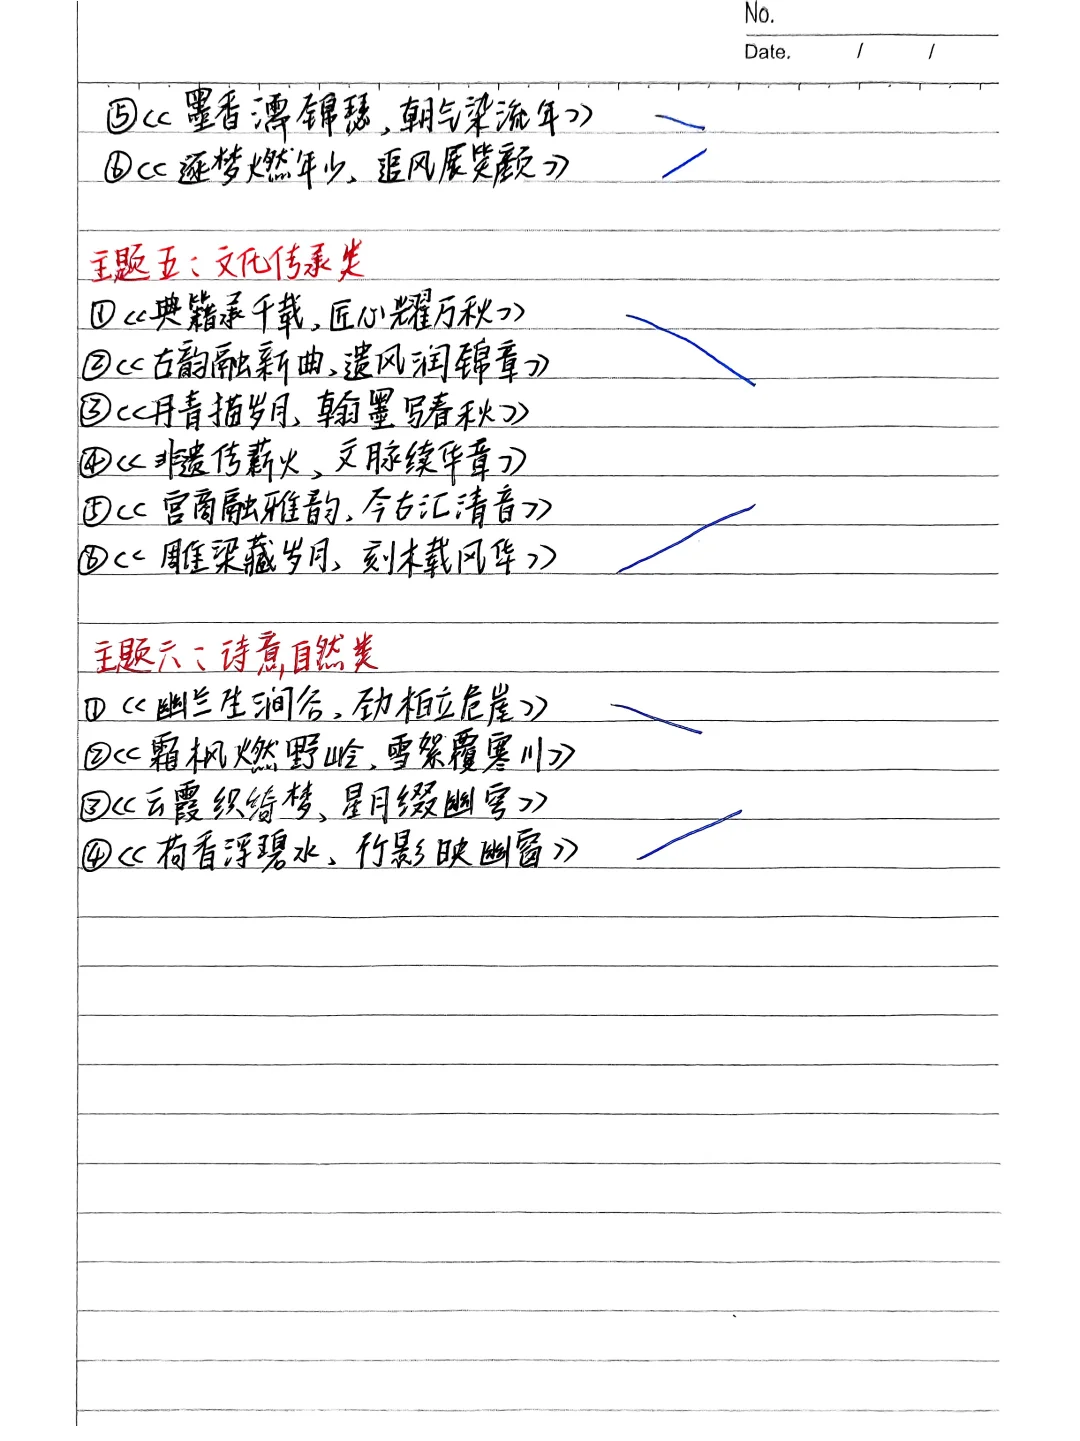 No.
Date. / /
⑤<<墨香濡锦瑟,朝气染流年>>
⑥<<逐梦燃年少,追风展笑颜>>
主题五:文化传承类
①<<典籍承千载,匠心耀万秋>>
②<<古韵融新曲,遗风润锦章>>
③<<丹青描岁月,翰墨写春秋>>
④<<非遗传薪火,文脉续华章>>
⑤<<宫商融雅韵,今古汇清音>>
⑥<<雕梁藏岁月,刻木载风华>>
主题六:诗意自然类
①<<幽兰生涧谷,劲柏立危崖>>
②<<霜枫燃野岭,雪絮覆寒川>>
③<<云霞织绮梦,星月缀幽穹>>
④<<荷香浮碧水,竹影映幽窗>>